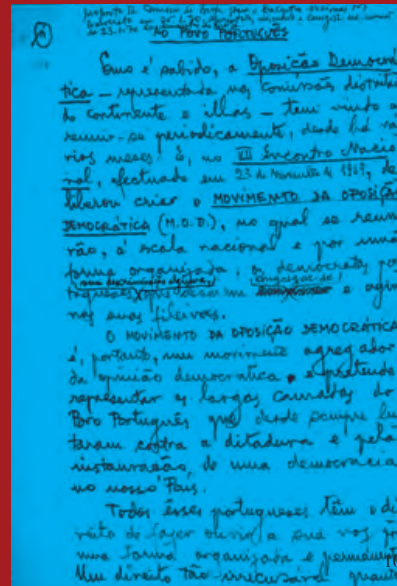 AO POVO PORTUGUÊS
Como é sabido, a Oposição Democrá
tica — representada nas comissões distritais
do continente e ilhas — tem vindo a
reunir-se periodicamente, desde há vá
rios meses. E, no VII Encontro Nacio
nal, efectuado em 23 de Novembro de 1969, de
liberou criar o MOVIMENTO DA OPOSIÇÃO
DEMOCRÁTICA (M.O.D.), no qual se reuni
rão, à escala nacional e por uma
forma organizada, os democratas por
tugueses, que desejem e agir
nas suas fileiras.
O MOVIMENTO DA OPOSIÇÃO DEMOCRÁTICA
é, portanto, um movimento agregador
da opinião democrática e pretende
representar as largas camadas do
Povo Português que desde sempre lu
taram contra a ditadura e pela
instauração de uma democracia
no nosso País.
Todos esses portugueses têm o di
reito de fazer ouvir a sua voz
uma forma organizada e permanente
Um direito tão irrecusável quanto